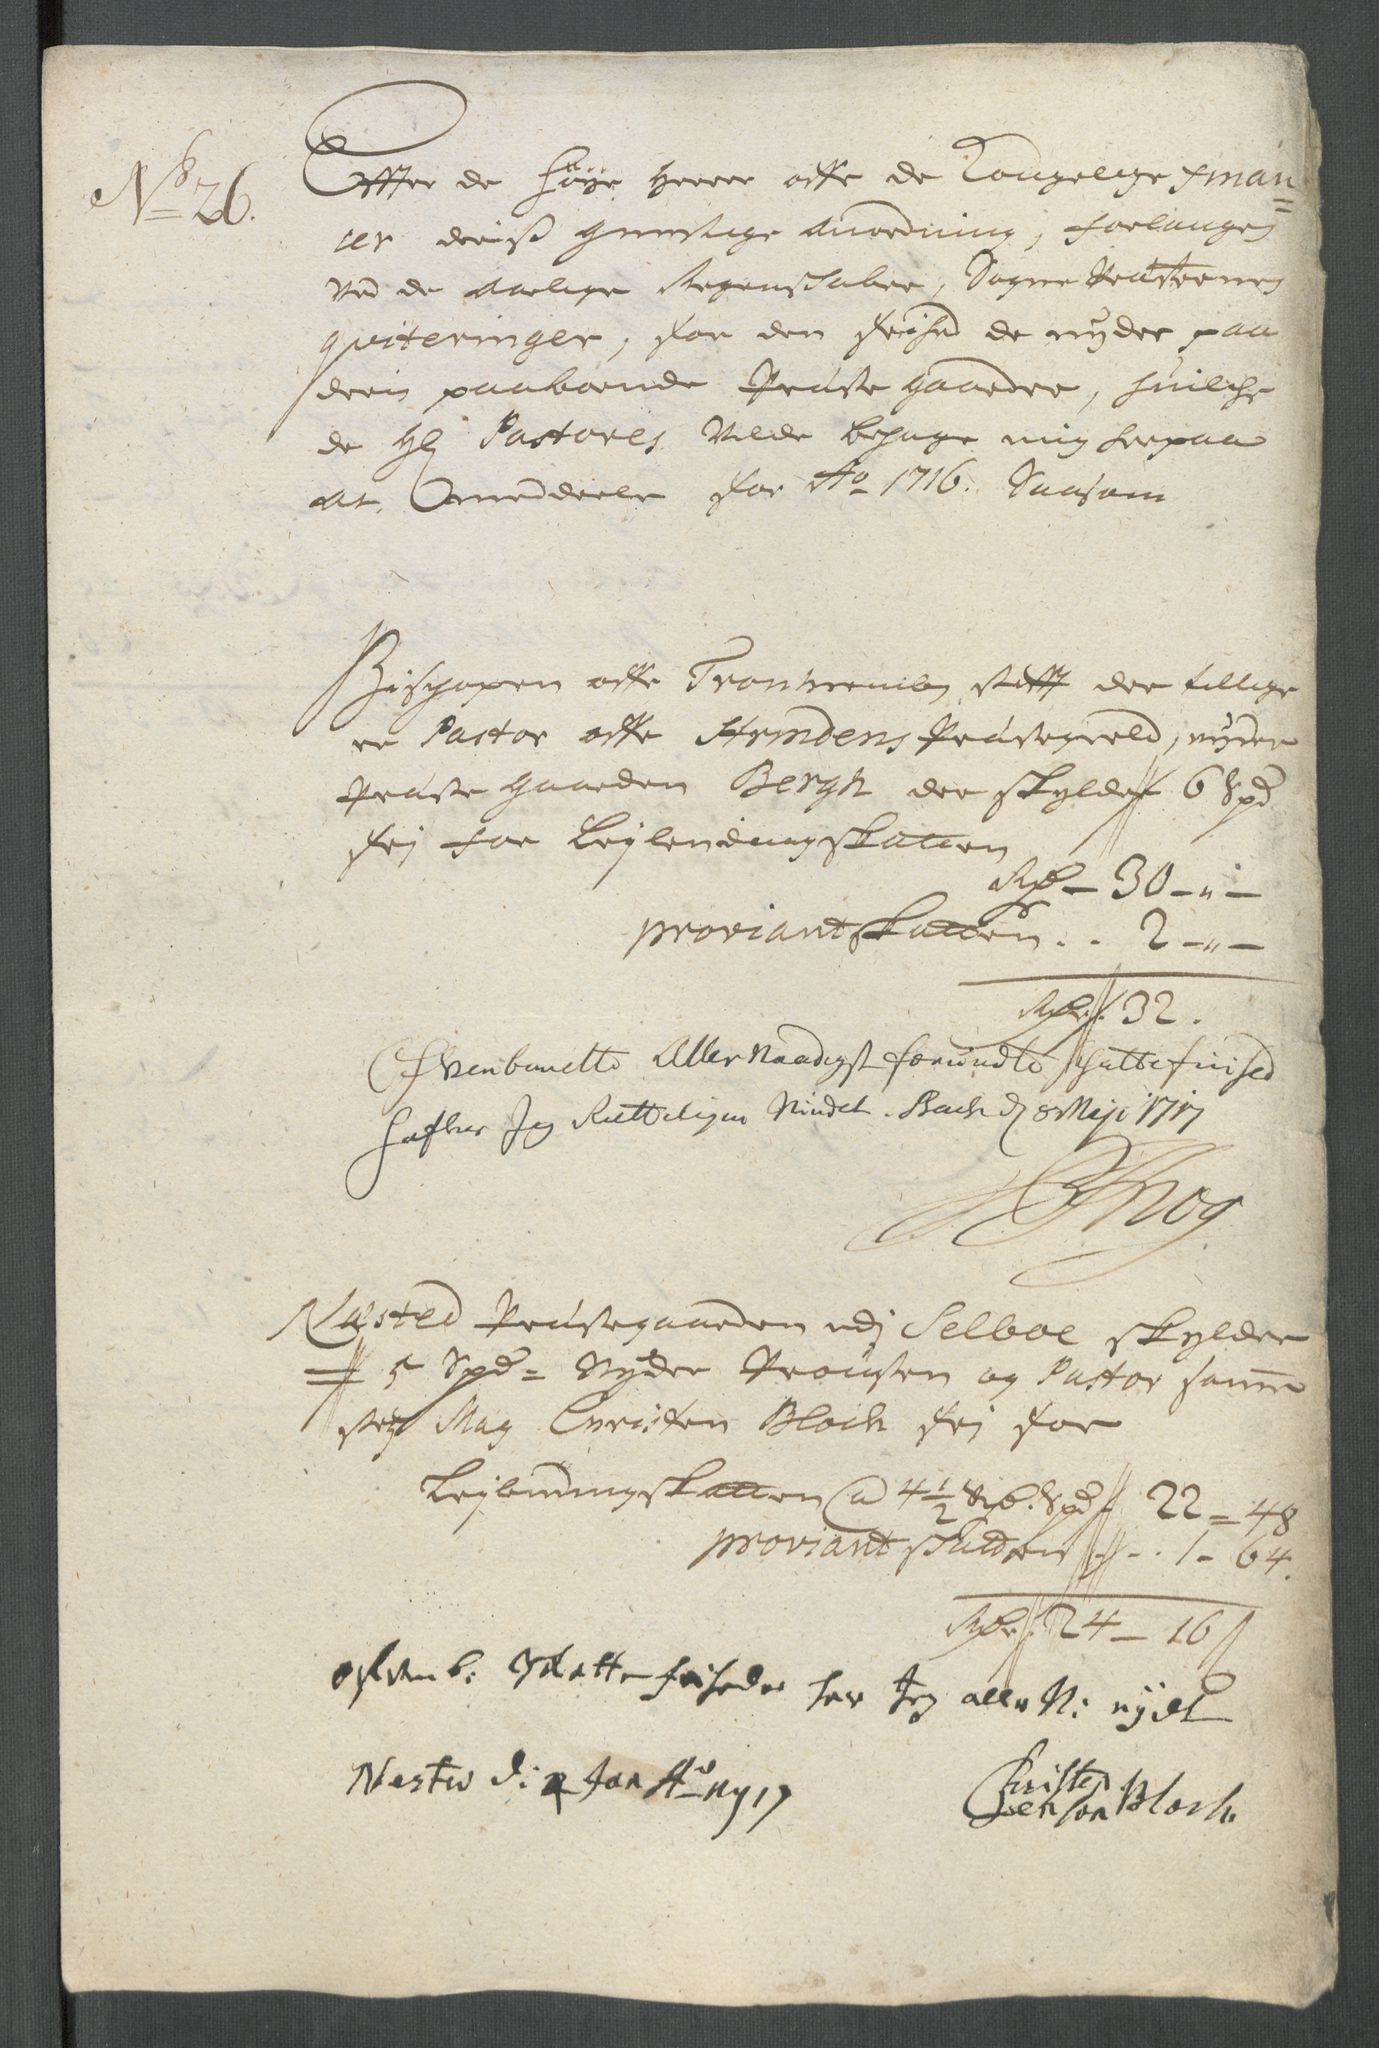 No 26.
Effter de höÿe herrer aff de Kongelige Finan=
cer deriß gunstige anordning, forlanges
ved de aarlige Regenschaber, Sogne Præsternes
qviteringer, for den frihed de nÿder paa
deris paaboende Præste gaarder, huilche
de Hr Pastores vilde behage mig herpaa
at meddeele for Ao 1716. Saasom
Bischopen aff Tronhiembs stifft der tillige
er Pastor aff Strindens Præstegield, nÿder
Præste gaarden Bergh der skylder 6 Spd
fri for Leÿlendingskatten
Rdr - 30 - " -
proviantskatten . . 2 - " -
Rdr. 32.
Ofvenbemelte Allernaadigst forundte skattefrihed
hafver Jeg Retteligen Nÿdet. Bach d 8 Maji 1717
Krog
Næsted Præstegaarden udj Selboe skylder
5 Spd = Nÿder Prousten og Pastor samme
sted Mag Christen Bloch fri for
Leÿlendingskatten a 4 1/2 Rdr. Spd 22 = 48
proviant skatten . - . 1 - 64.
Rdr. 24 - 16 s
ofvenb: skatte friheder har Jeg aller N: nÿdt
Nestw d: 2 Jan Ao 1717
Christen
Jenson Bloch.